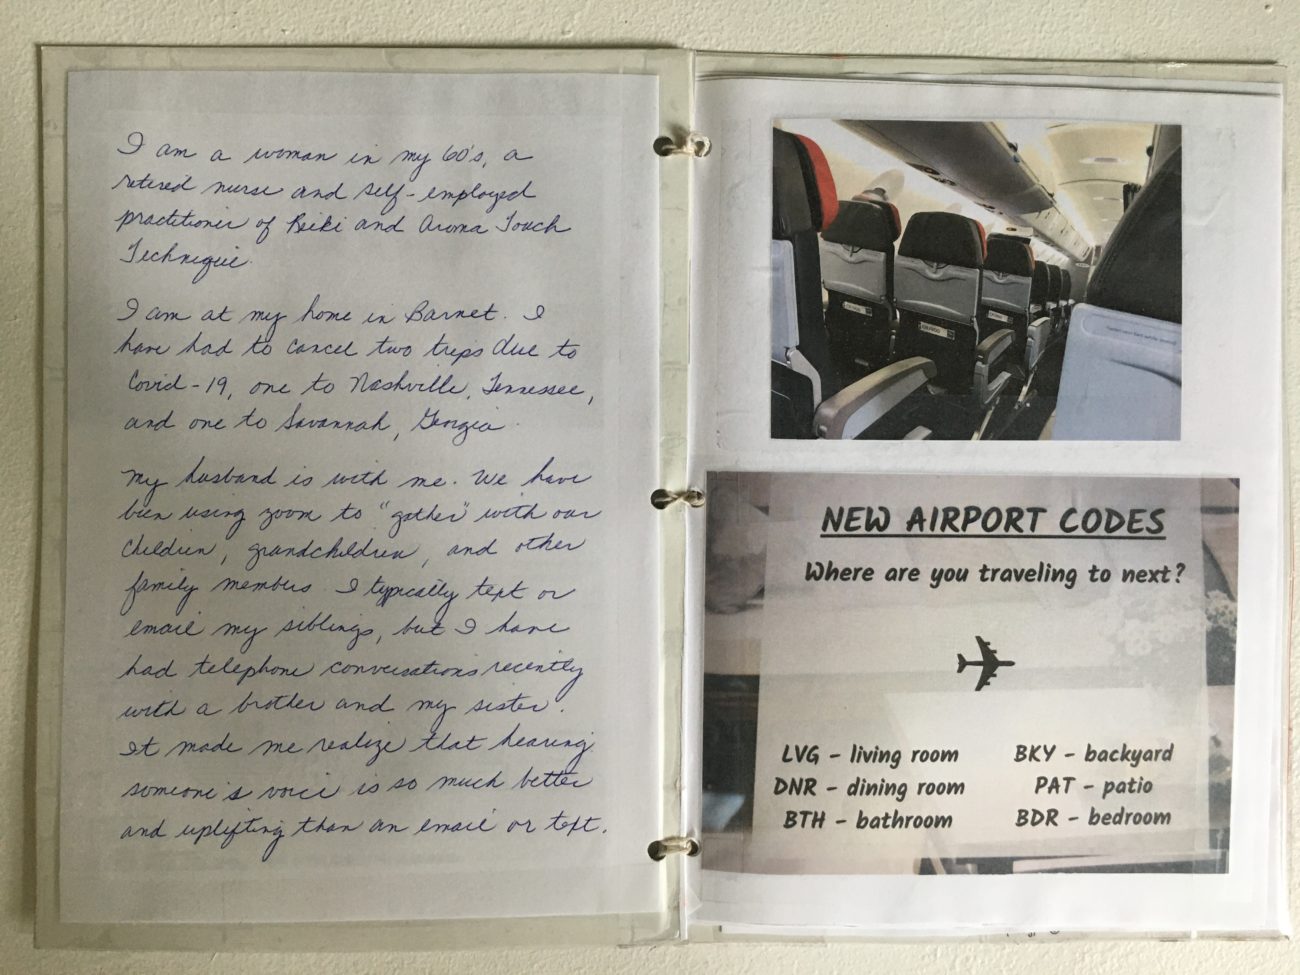 I am a woman in my 60's, a
retired nurse and self-employed
practitioner of Reiki and Aroma Touch
Technique.
I am at my home in Barnet. I
have had to cancel two trips due to
Covid-19, one to Nashville, Tennessee,
and one to Savannah, Georgia.
My husband is with me. We have
been using zoom to "gather" with our
children, grandchildren, and other
family members. I typically text or
email my siblings, but I have
had telephone conversations recently
with a brother and my sister.
It made me realize that hearing
someone's voice is so much better
and uplifting than an email or text.
NEW AIRPORT CODES
Where are you traveling to next?
LVG - living room
DNR - dining room
BTH - bathroom
BKY - backyard
PAT - patio
BDR - bedroom